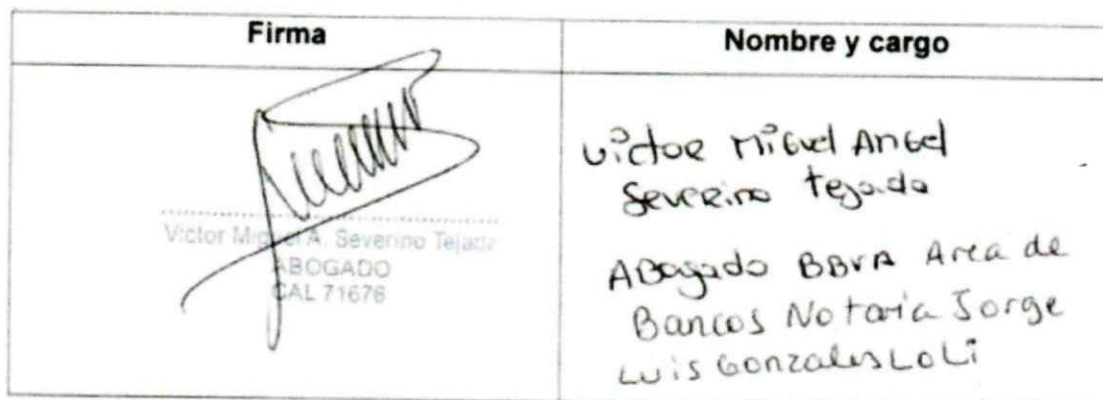 Firma
Nombre y cargo
Victor Miguel A. Severino Tejada
ABOGADO
CAL 71676
Victor Miguel Angel
Severino Tejada
ABogado BBVA Area de
Bancos Notaria Jorge
Luis Gonzales LoLi